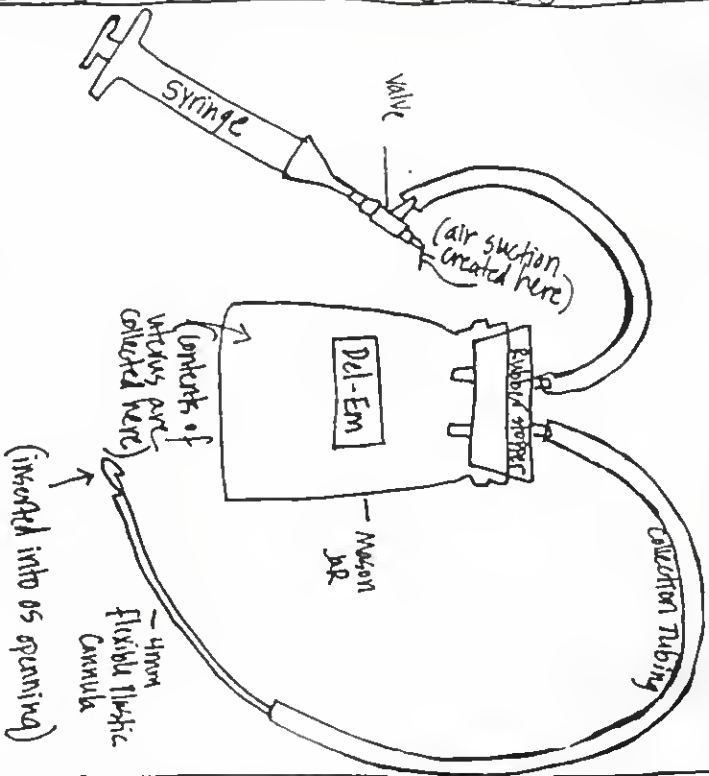 Syringe
valve
(air suction
created here)
Rubber stopper
Del-Em
(contents of
uterus are
collected here)
— Mason
JAR
Collection Tubing
— 4mm
flexible Plastic
Cannula
(inserted into os openning)